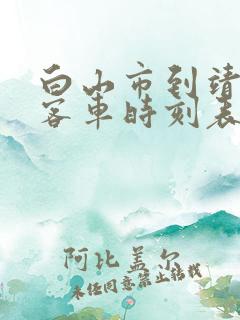 白山市到靖
客车时刻表
阿比盖尔
未经同意禁止转载